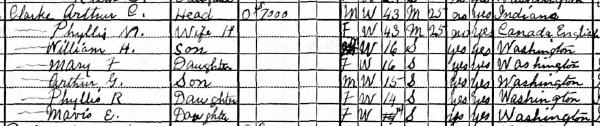 Clarke Arthur C. Head O 7000 M W 43 M 25 no yes Indiana
— Phyllis M. Wife H F W 43 M 25 no yes Canada English
— William H. Son W 16 S yes yes Washington
— Mary F Daughter F W 16 S yes yes Washington
— Arthur G. Son M W 15 S yes yes Washington
— Phyllis R Daughter F W 14 S yes yes Washington
— Mavis E. Daughter F W S yes yes Washington